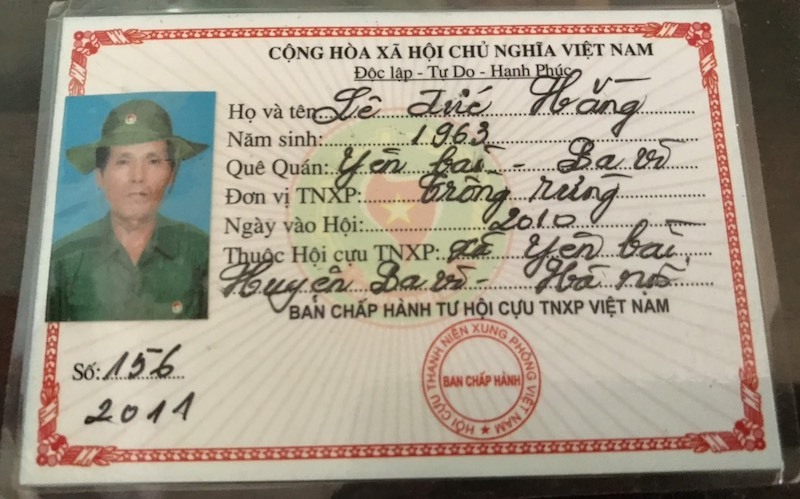 CỘNG HÒA XÃ HỘI CHỦ NGHĨA VIỆT NAM
Độc lập - Tự Do - Hạnh Phúc
Họ và tên: Lê Hằng
Năm sinh: 1963
Quê Quán: Yên bài - Ba vì
Đơn vị TNXP: trồng rừng
Ngày vào Hội: 2010
Thuộc Hội cựu TNXP: xã Yên bài
Huyện Ba vì - Hà nội
BAN CHẤP HÀNH TƯ HỘI CỰU TNXP VIỆT NAM
Số: 156
2011
HỘI CỰU THANH NIÊN XUNG PHONG VIỆT NAM
BAN CHẤP HÀNH